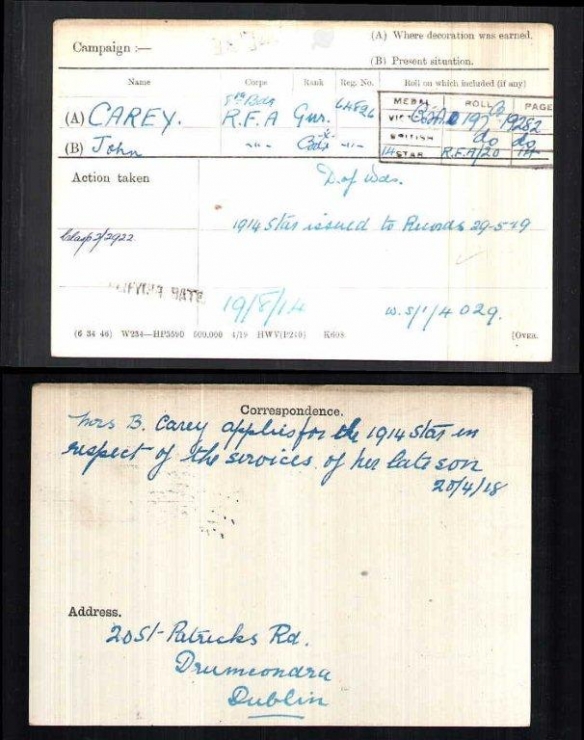 Campaign :—
(A) Where decoration was earned.
(B) Present situation.
Name Corps Rank Reg. No. Roll on which included (if any)
MEDAL ROLL PAGE
(A) CAREY. 8th Bde R.F.A Gnr. 64826
VICTORY 197 19282
BRITISH do do
(B) John -"- -"-
14 STAR R.F.A/20 14
Action taken
D. of Wds.
1914 Star issued to Records 29-5-19
Clasp 2/2922
QUALIFYING DATE
19/8/14 W.S/1/4029.
(6 34 46) W234—HP5590 600,000 4/19 HWV(P240) K608 [OVER.
Correspondence.
Mrs B. Carey applies for the 1914 Star in
respect of the services of her late son
20/4/18
Address.
20 St. Patricks Rd.
Drumcondra
Dublin